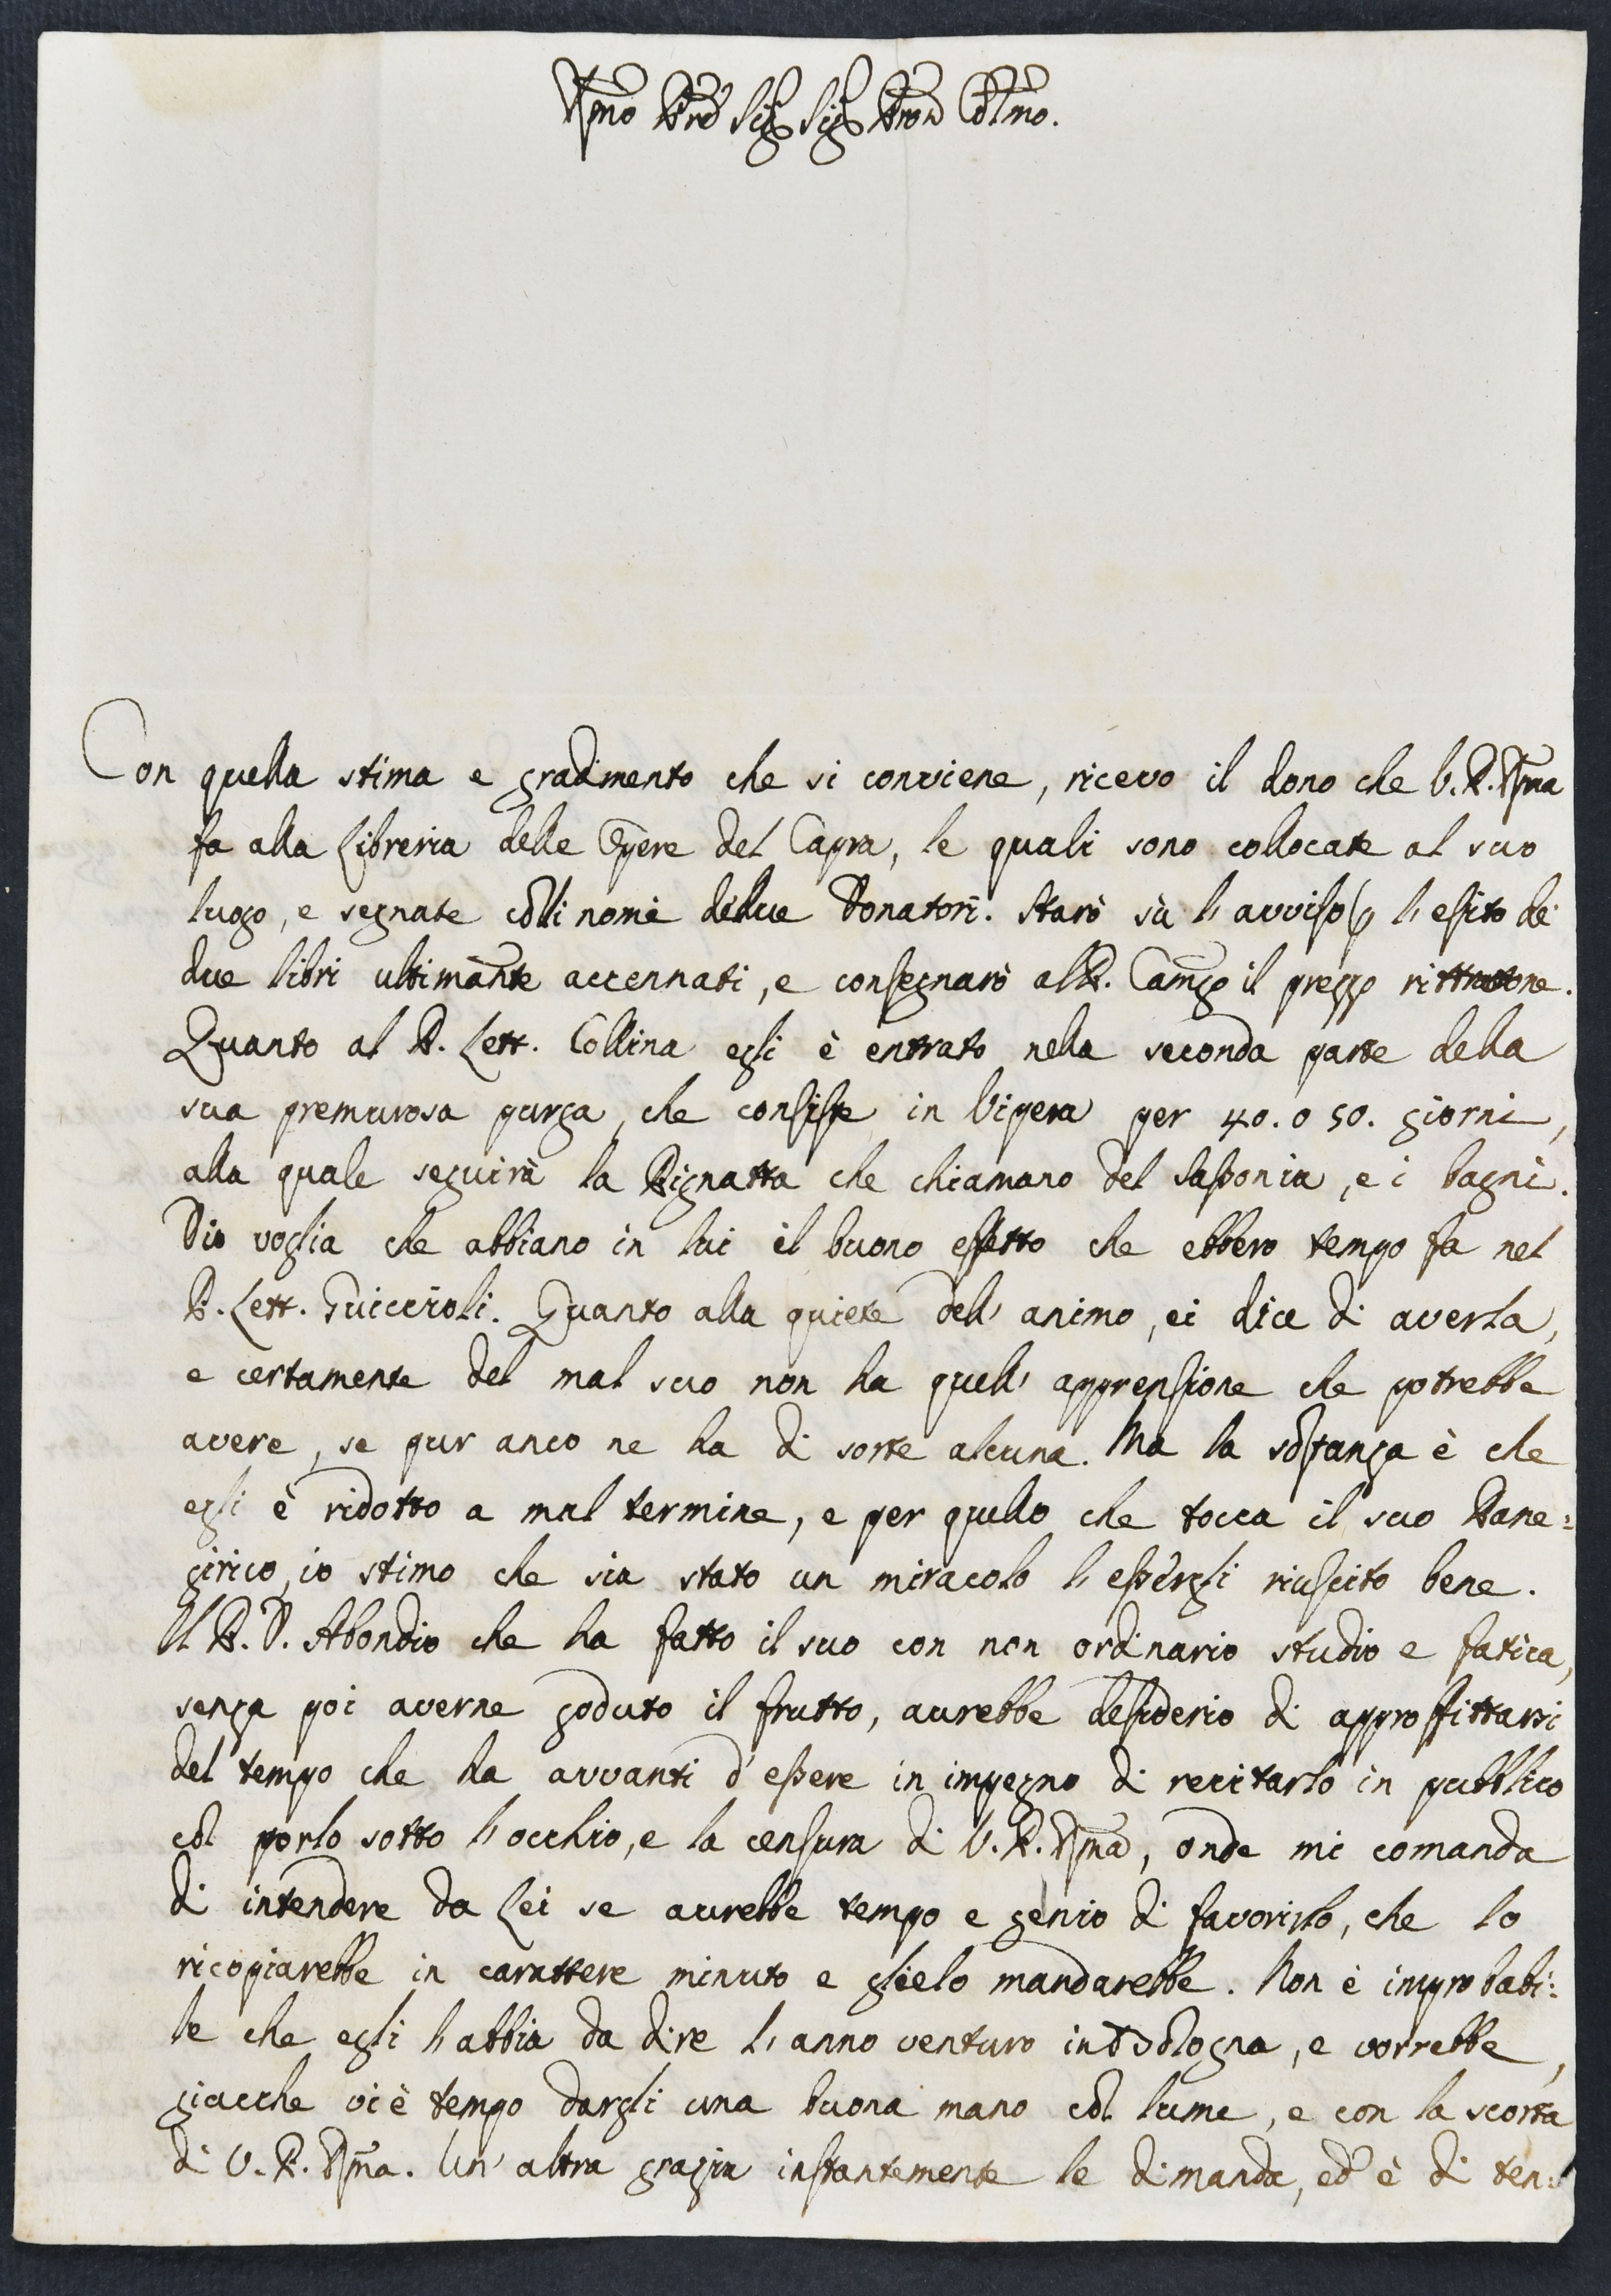 Rmo Prē Sig Sig Prōn Colmo.
Con quella stima e gradimento che si conviene, ricevo il dono che V. P. Rma
fa alla Libreria delle Opere del Capra, le quali sono collocate al suo
luogo, e segnate colli nomi delli Donatori. Starò sù l'avviso p l'esito de
due libri ultimante accennati, e consegnarò al P. il prezzo
Quanto al P. Lett. Collina egli è entrato nella seconda parte della
sua premurosa purga, che consiste in Vipera per 40. o 50. giorni,
alla quale seguirà la Pignatta che chiamano del Sassonia, e i bagni.
Dio voglia che abbiano in lui il buono effetto che ebbero tempo fa nel
P. Lett. Guiccioli. Quanto alla quiete dell' animo, ei dice di averla,
e certamente del mal suo non ha quell' apprensione che potrebbe
avere, se pur anco ne ha di sorte alcuna. Ma la sostanza è che
egli è ridotto a mal termine, e per quello che tocca il suo Pane=
girico, io stimo che sia stato un miracolo l'essergli riuscito bene.
Il P. D. Abondio che ha fatto il suo con non ordinario studio e fatica,
senza poi averne goduto il frutto, aurebbe desiderio di approffittarsi
del tempo che ha avvanti d'essere in impegno di recitarlo in pubblico
col porlo sotto l'occhio, e la censura di V. P. Rma, onde mi comanda
di intendere da Lei se aurebbe tempo e genio di favorirlo, che lo
ricopiarebbe in carattere minuto e glielo mandarebbe. Non è improbabi:
le che egli l'abbia da dire l'anno venturo in Bologna, e vorrebbe,
giacche vi è tempo dargli una buona mano col lume, e con la scorta
di V. P. Rma. Un' altra grazia instantemente le dimanda, ed è di ten: